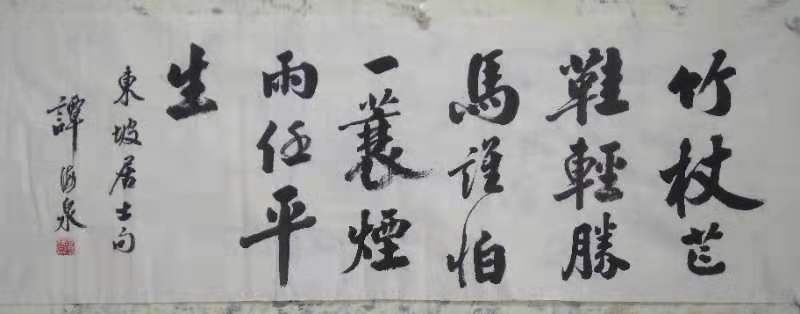 竹杖芒
鞋輕勝
馬誰怕
一蓑煙
雨任平
生
東坡居士句
譚海泉